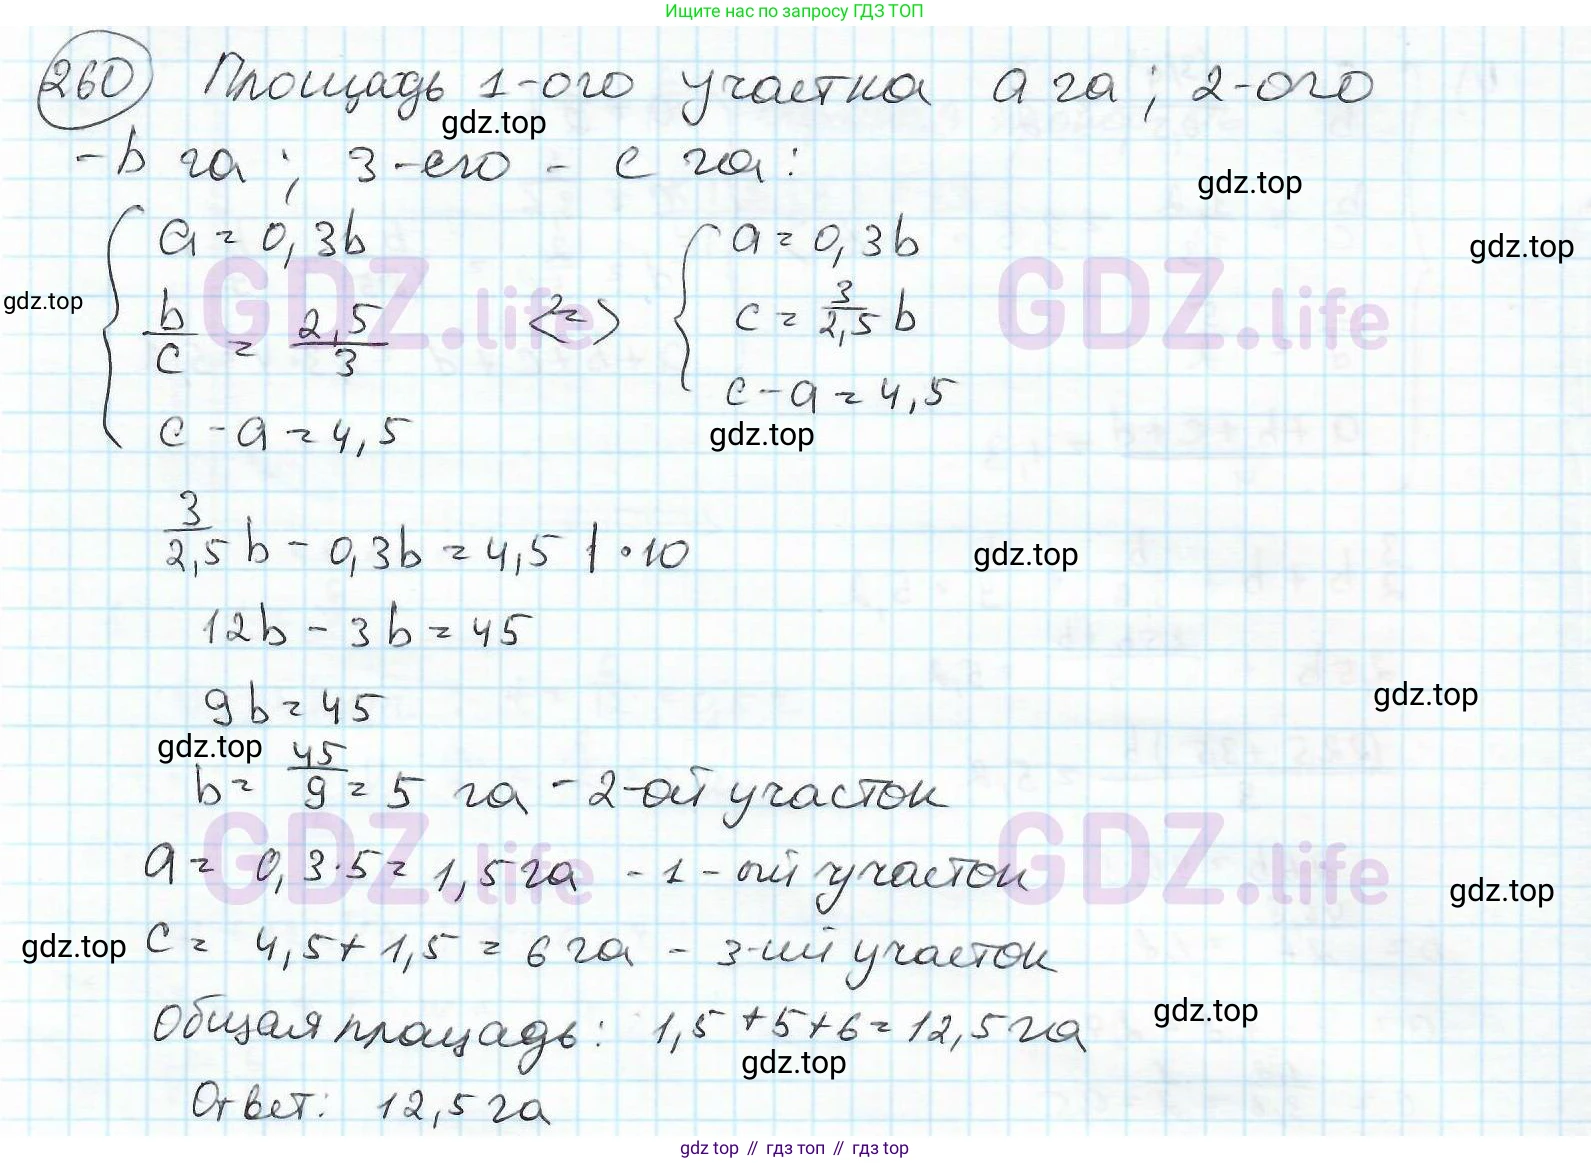 Ищите нас по запросу ГДЗ ТОП
260 Площадь 1-ого участка a га; 2-ого
gdz.top
- b га; 3-его - c га:
gdz.top
a = 0,3b a = 0,3b
gdz.top
GDZ.life GDZ.life
gdz.top
b/c = 2,5/3 <=> c = 3/2,5 b
c - a = 4,5 c - a = 4,5
gdz.top
3/2,5 b - 0,3b = 4,5 | · 10
gdz.top
12b - 3b = 45
9b = 45
gdz.top
gdz.top
b = 45/9 = 5 га - 2-ой участок
GDZ.life GDZ.life
a = 0,3·5 = 1,5 га - 1-ый участок
gdz.top
c = 4,5 + 1,5 = 6 га - 3-ий участок
gdz.top
gdz.top
Общая площадь: 1,5 + 5 + 6 = 12,5 га
gdz.top
Ответ: 12,5 га
gdz top // гдз топ // gdz top